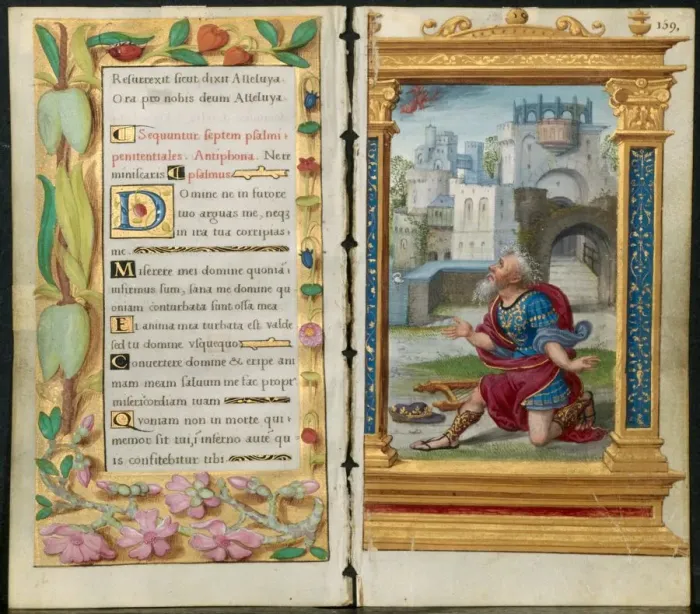 Reſurrexit ſicut dixit Alleluya.
Ora pro nobis deum Alleluya
Sequuntur ſeptem pſalmi
penitentiales. Antiphona. Ne re
miniſcaris pſalmus
Domine ne in furore
tuo arguas me, neqꝫ
in ira tua corripias
me.
Miſerere mei domine quoniā
infirmus ſum, ſana me domine qu
oniam cōturbata ſunt oſſa mea
Et anima mea turbata eſt valde
ſed tu domine vſquequo
Conuertere domine & eripe ani
mam meam ſaluum me fac propt'
miſericordiam tuam
Quoniam non in morte qui
memor ſit tui, ī inferno autē qu
is confitebitur tibi.
159.